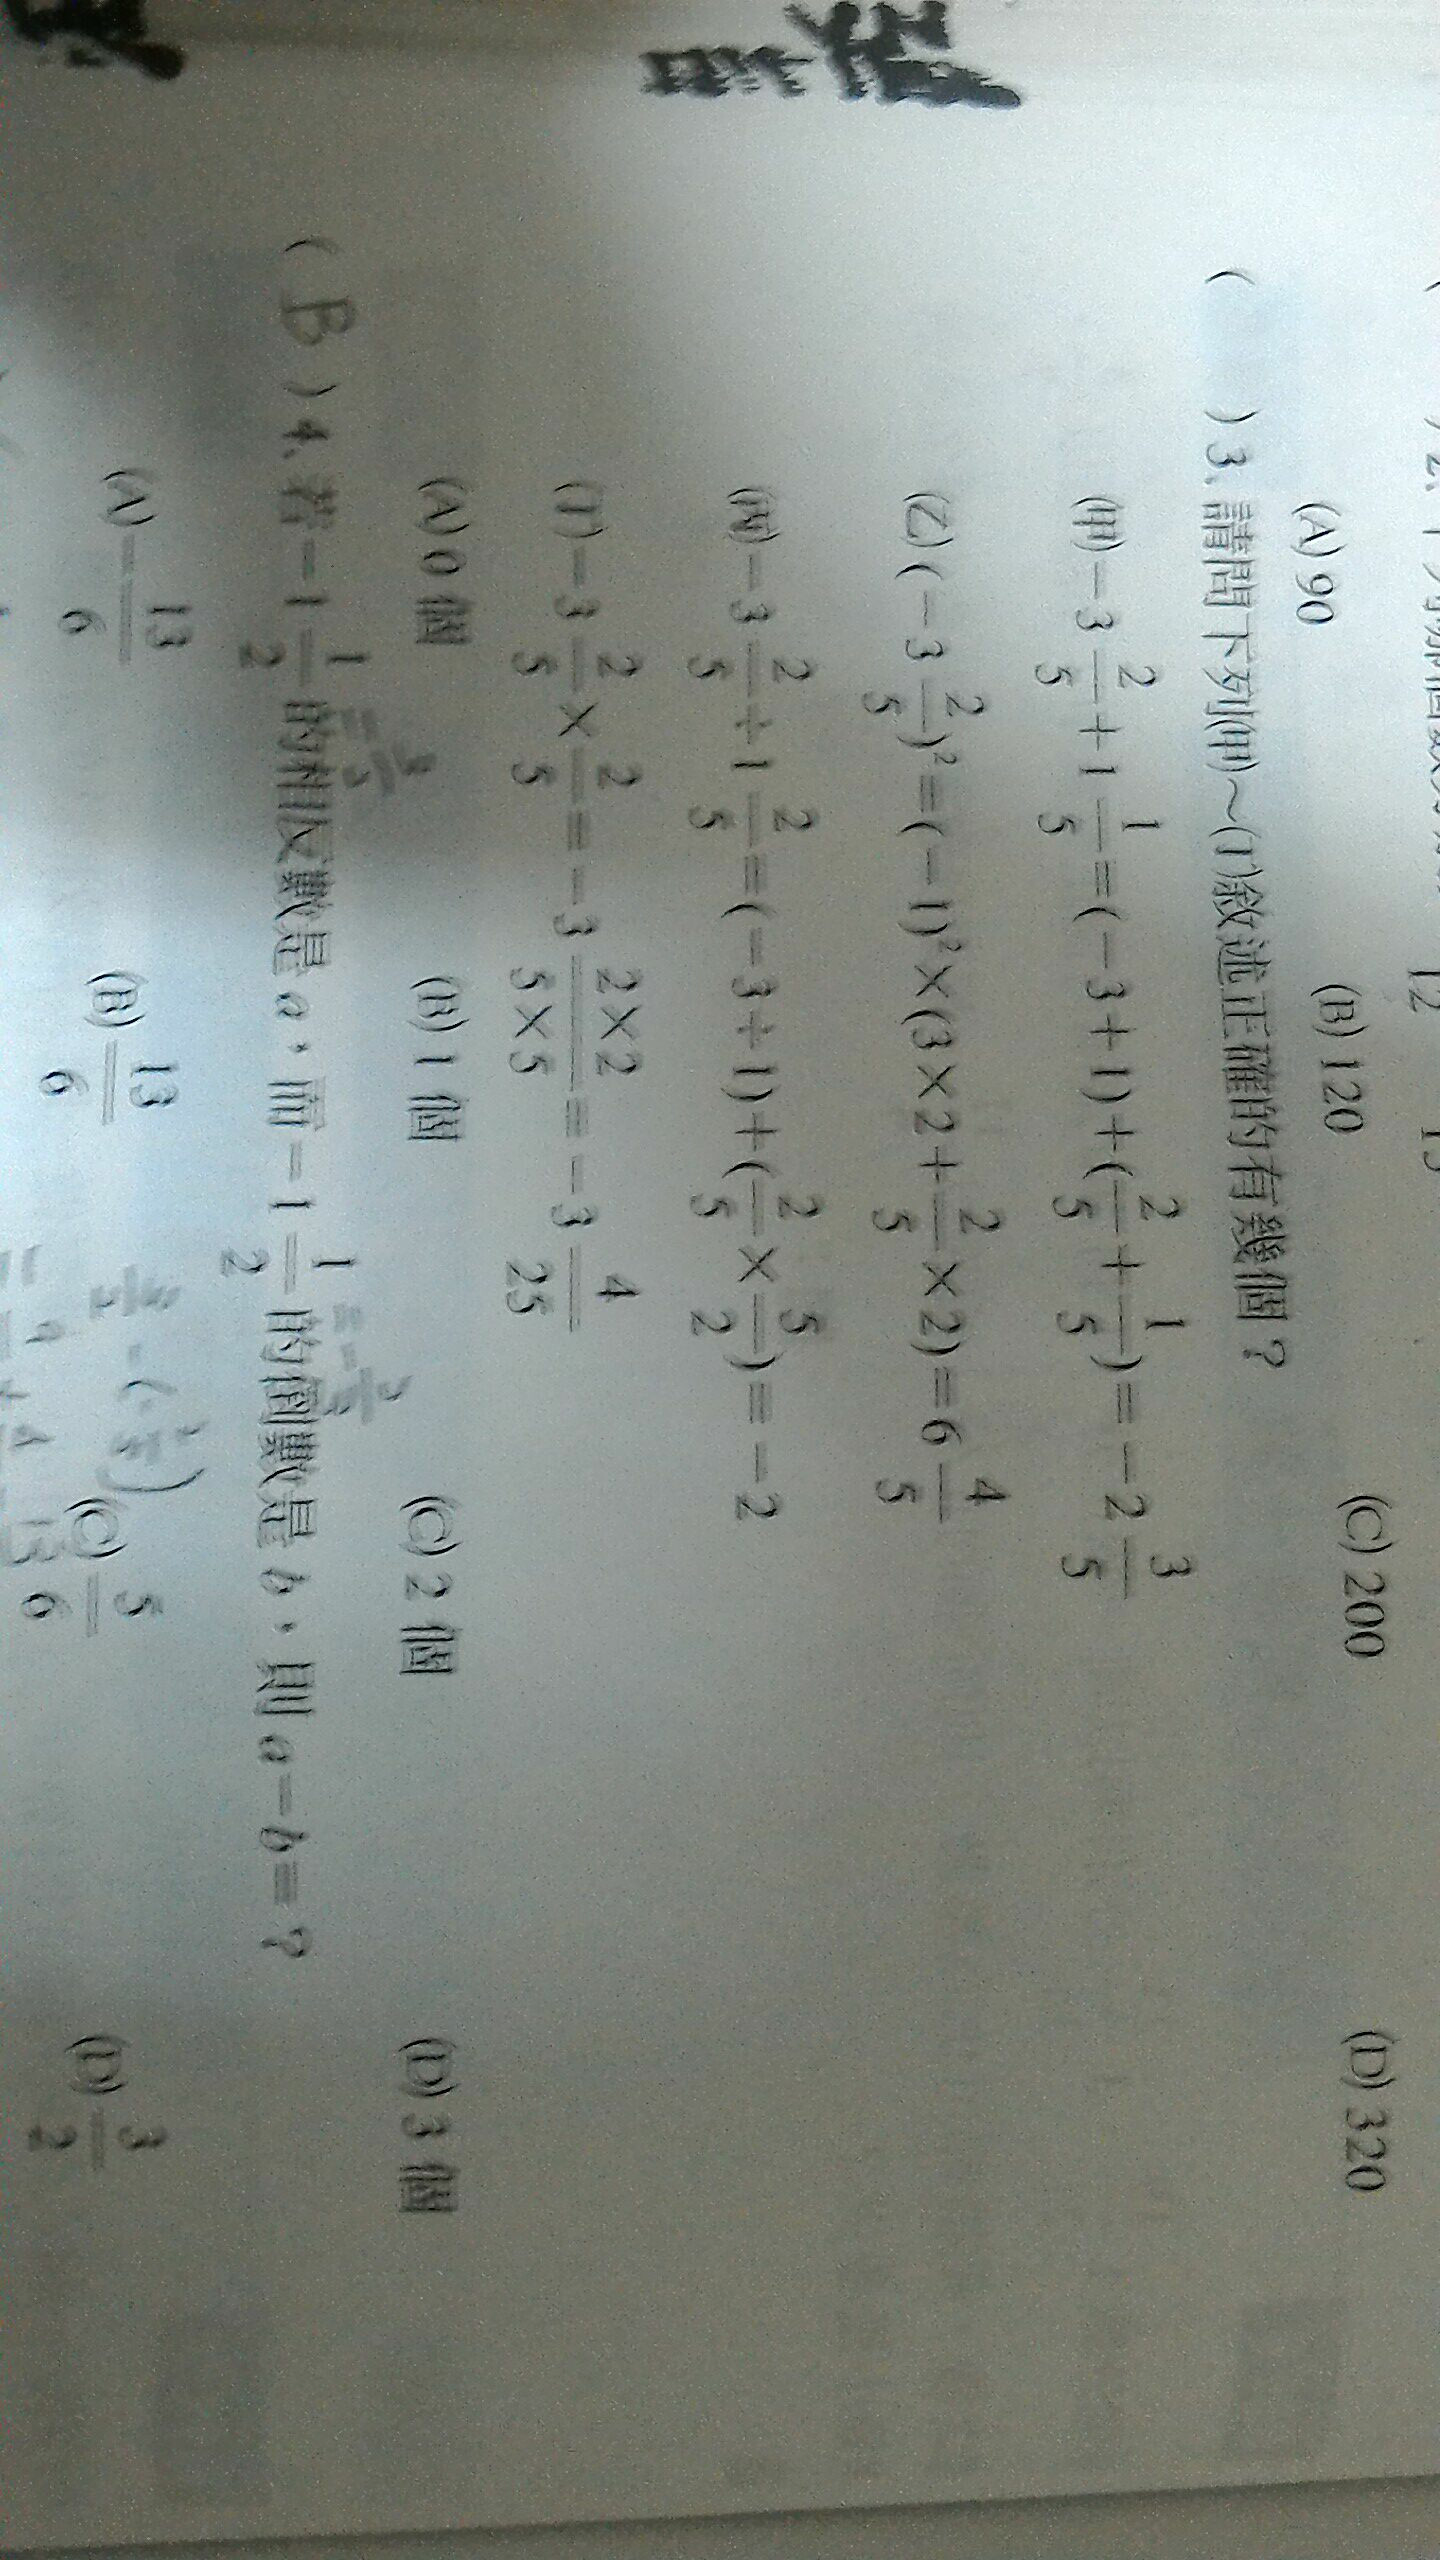 (A) 90 (B) 120 (C) 200 (D) 320
( ) 3. 請問下列(甲)～(丁)敘述正確的有幾個？
(甲) －3 2/5 ＋ 1 1/5 ＝(－3＋1)＋(2/5＋1/5)＝－2 3/5
(乙) (－3 2/5)²＝(－1)²×(3×2＋2/5×2)＝6 4/5
(丙) －3 2/5 ÷ 1 2/5 ＝(－3÷1)＋(2/5×5/2)＝－2
(丁) －3 2/5 × 2/5 ＝－3 2×2/5×5 ＝－3 4/25
(A) 0 個 (B) 1 個 (C) 2 個 (D) 3 個
( B ) 4. 若－1 1/2 的相反數是 a，而－1 1/2 的倒數是 b，則 a－b＝？
(A) －13/6 (B) 13/6 (C) 5/6 (D) 3/2